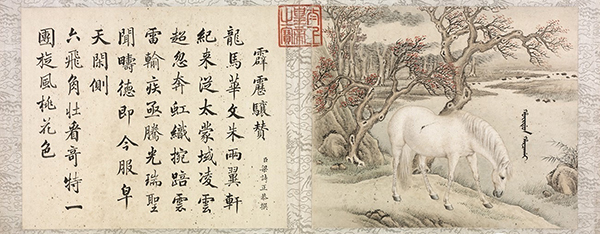 霹靂驤贊
臣梁詩正恭撰
龍馬華文朱兩翼軒
紀來從太蒙域凌雲
超忽奔虹織踣雲
雷輪疾亟騰光瑞聖
聞疇德即今服皁
天閑側
六飛角壯看哥特一
團旋風桃花色